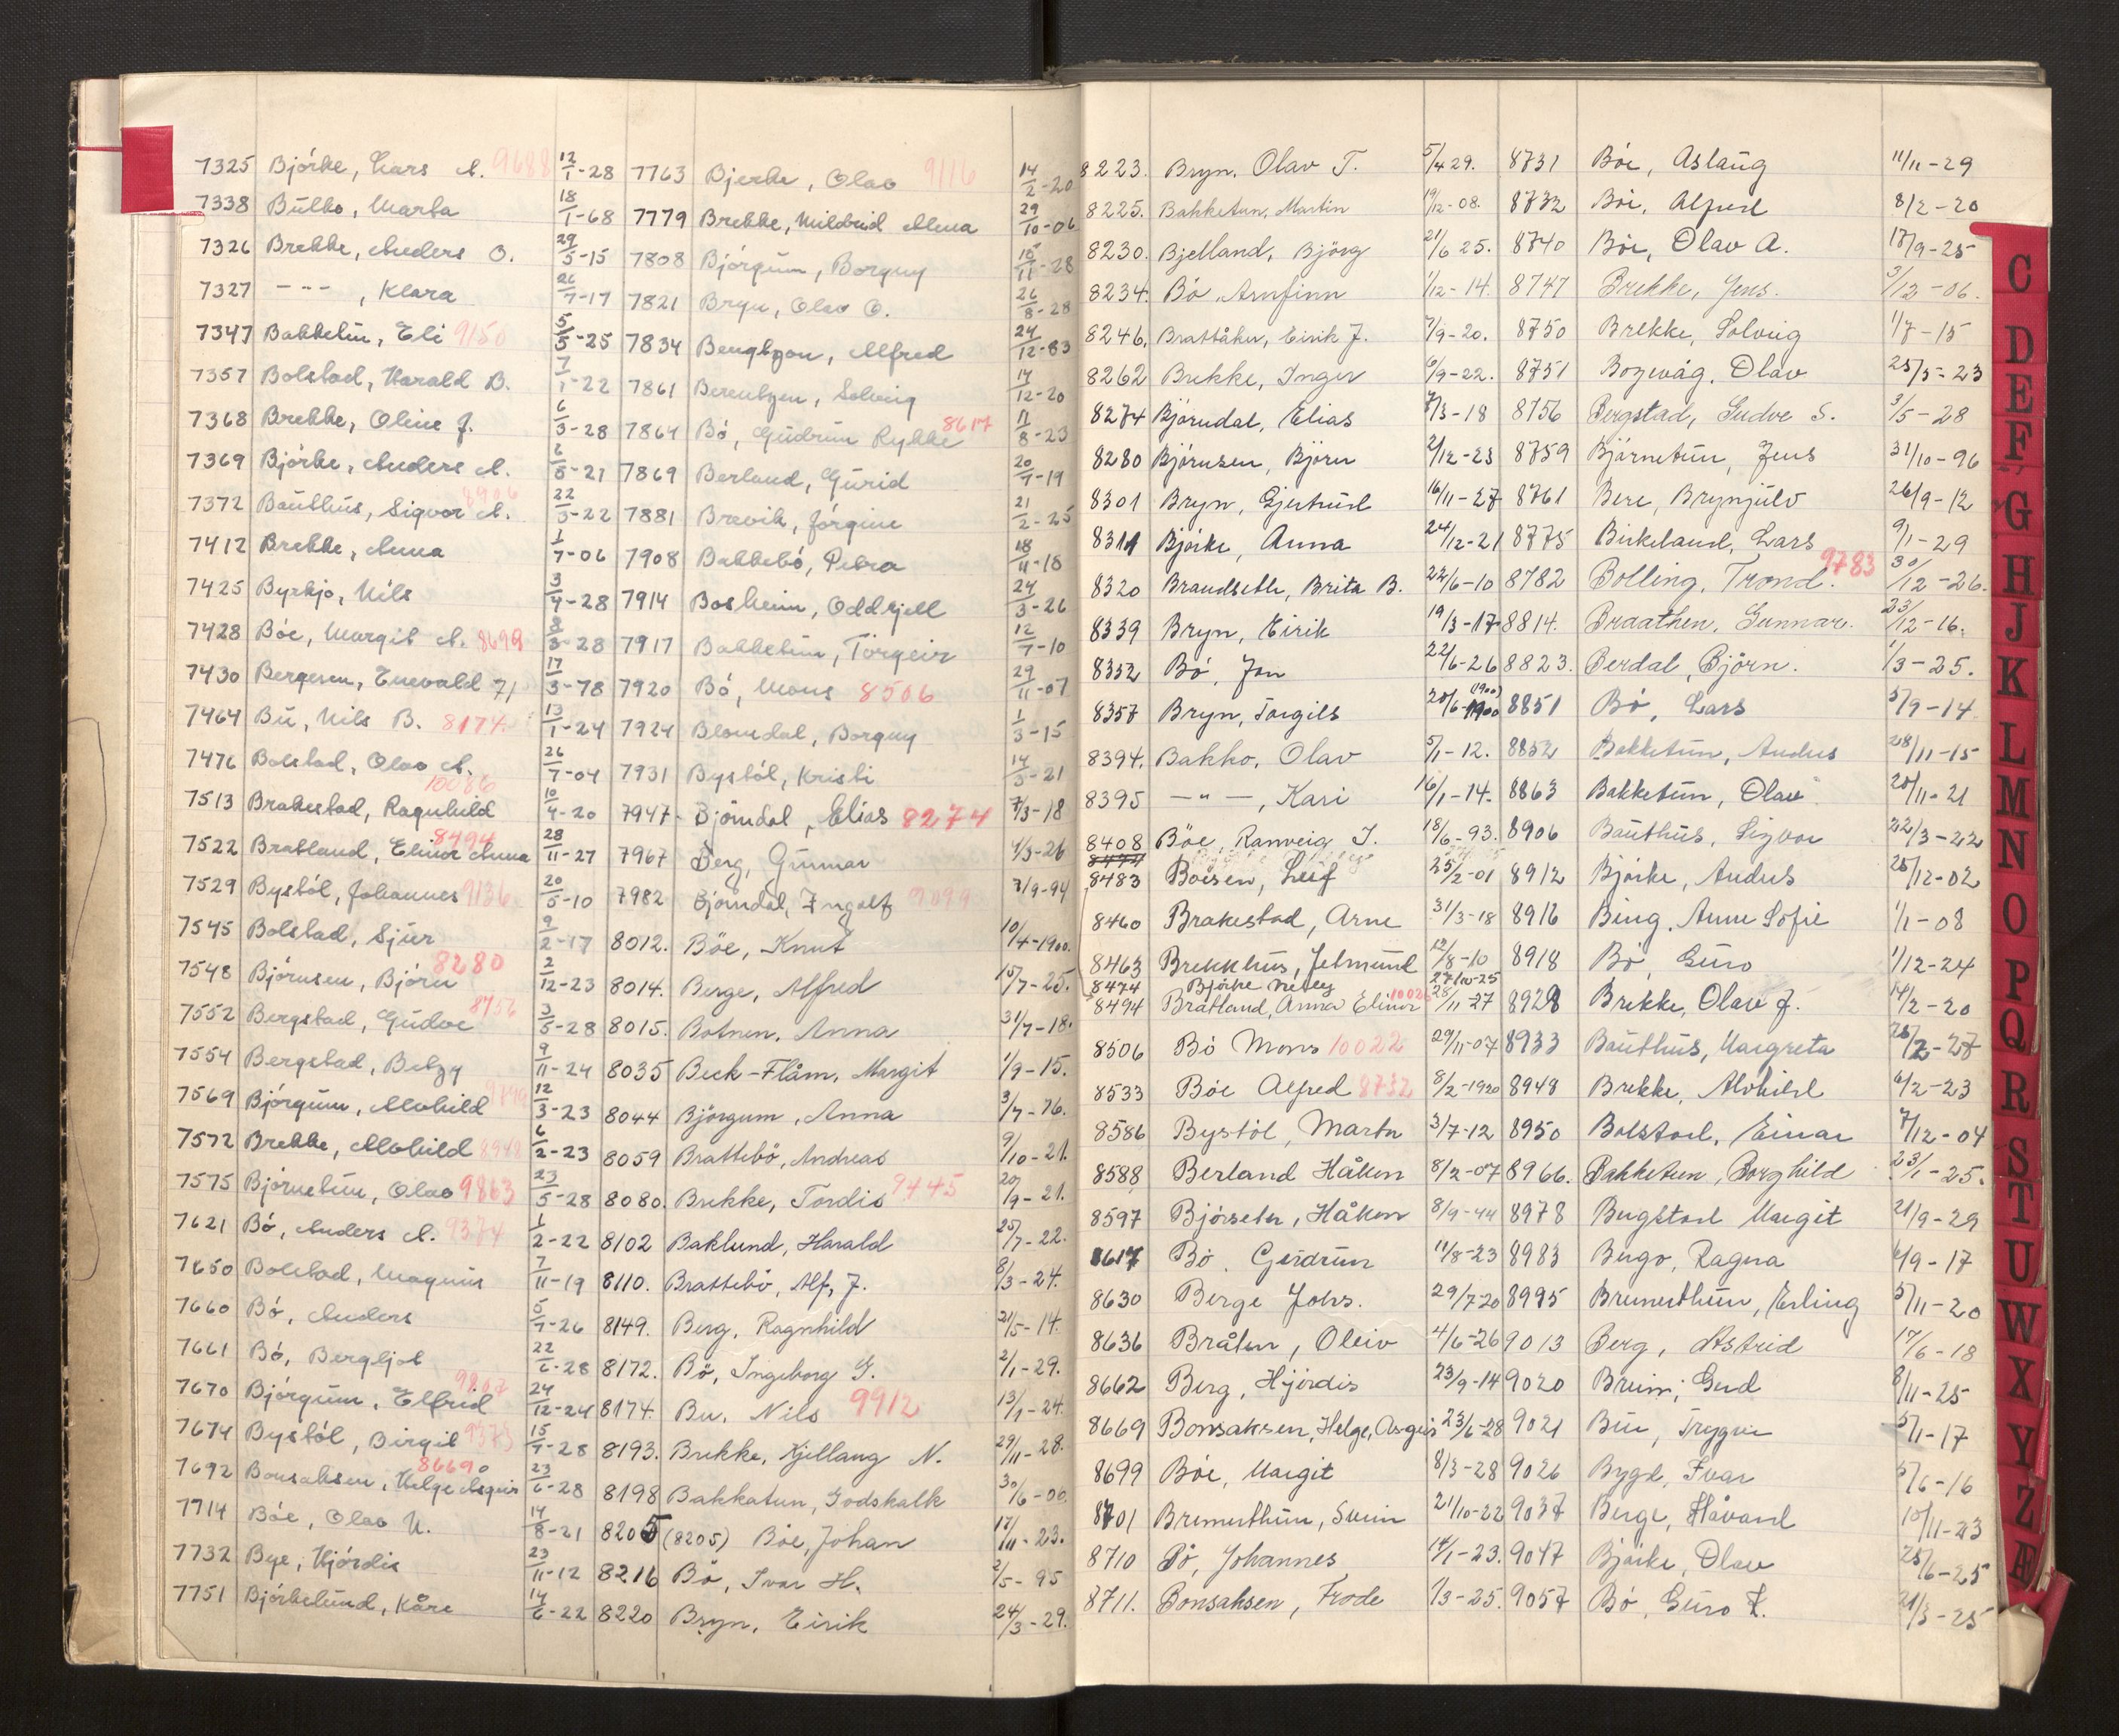 7325 Bjórke, Lars A. 9688 12/1-28
7338 Bulko, Marta 18/1-68
7326 Brekke, Anders O. 29/5-15
7327 -"- , Klara 26/7-17
7347 Bakketun, Eli 9150 5/5-25
7357 Bolstad, Harald B. 7/1-22
7368 Brekke, Oline J. 6/3-28
7369 Bjórke, Anders A. 6/5-21
7372 Bauthus, Sigvor A. 8906 22/3-22
7412 Brekke, Anna 1/7-06
7425 Byrkjo, Nils 3/4-28
7428 Bóe, Margit A. 8699 8/3-28
7430 Bergesen, Enevald 71 17/3-78
7464 Bu, Nils B. 8174 13/1-24
7476 Bolstad, Olav A. 26/7-04
7513 Brakestad, Ragnhild 10086 10/4-20
7522 Bratland, Elinor Anna 8494 28/11-27
7529 Bystól, Johannes 9136 20/5-10
7545 Bolstad, Sjur 9/2-17
7548 Bjórnsen, Bjórn 8280 2/12-23
7552 Bergstad, Gudve 8756 3/5-28
7554 Bergstad, Betzy 9/11-24
7569 Bjórgum, Alvhild 12/3-23
7572 Brekke, Alvhild 8948 6/2-23
7575 Bjórnetun, Olav 9863 23/5-28
7621 Bó, Anders A. 9374 1/2-22
7650 Bolstad, Magnus 7/11-19
7660 Bó, Anders 5/7-26
7661 Bó, Bergljot 22/6-28
7670 Bjórgum, Elfrid 9807 24/12-24
7674 Bystól, Birgit 9373 15/7-28
7692 Bonsaksen, Helge Asgeir 8669 23/6-28
7714 Bóe, Olav N. 14/8-21
7732 Bye, Hjórdis 23/11-12
7751 Bjórkelund, Kåre 14/6-22
7763 Bjerke, Olav 9116 14/2-20
7779 Brekke, Mildrid Alma 29/10-06
7808 Bjórgum, Borguy 15/11-28
7821 Bryn, Olav O. 26/8-28
7834 Bengtzon, Alfred 24/12-83
7861 Berentzen, Solveig 14/12-20
7864 Bó, Gudrun Rykke 8617 11/8-23
7869 Berland, Gurid 20/7-19
7881 Brevik, Jórgine 21/2-25
7908 Bakkebó, Petra 18/11-18
7914 Bosheim, Oddkjell 24/3-26
7917 Bakketun, Torgeir 12/7-10
7920 Bó, Mons 8506 29/11-07
7924 Blomdal, Borguy 1/3-15
7931 Bystól, Kristi 14/3-21
7947 Bjórndal, Elias 8274 7/3-18
7967 Berg, Gunnar 4/3-26
7982 Bjórndal, Ingolf 9099 7/9-94
8012. Böe, Knut 10/4-1900.
8014. Berge, Alfred 15/7-25.
8015. Botnen, Anna 31/7-18.
8035 Beck-Flåm, Margit 1/9-15.
8044 Bjórgum, Anna 3/7-76.
8059 Brattebö, Andreas 9/10-21.
8080. Brekke, Tordis 9445 20/9-21.
8102 Baklund, Harald 25/7-22.
8110. Brattebö, Alf, J. 8/3-24.
8149. Berg, Ragnhild 21/5-14.
8172. Bö, Ingeborg G. 2/1-29.
8174. Bu, Nils 9912 13/1-24.
8193. Brekke, Kjellaug N. 29/11-28.
8198 Bakkatun, Godskalk 30/6-00.
8205 (8205) Böe, Johan 17/11-23.
8216 Bö, Ivar H. 2/5-95
8220 Bryn, Eirik 24/3-29.
8223. Bryn, Olav T. 5/4 29.
8225. Bakketun, Martin 19/12-08.
8230. Bjelland, Björg 21/6 25.
8234. Bö, Arnfinn 1/12-14.
8246. Brattåker, Eirik J. 7/9-20.
8262 Brekke, Inger 6/9-22.
8274 Bjórndal, Elias 7/3-18
8280 Bjórnsen, Bjórn 2/12-23
8301 Bryn, Gjertrud 16/11-27
8311 Bjórke, Anna 24/12-21
8320 Brandseth, Brita B. 22/6-10
8339 Bryn, Eirik 19/3-17
8352 Bó, Jon 22/6-26
8357 Bryn, Torgils 20/6-1900 (1900)
8394. Bakko, Olav 5/1-12.
8395 -"-, Kari 16/1-14.
8408 Böe, Ranveig I. 18/6-93.
8483 Boësen, Leif 25/2-01
8460 Brakestad, Arne 31/3-18
8463 Brekkhus, Jetmund 12/8-10
8474 Bjórke Neley 27/10-25
8494 Bratland, Anna Elinor 10026 28/11-27
8506 Bö Mons 10022 29/11-07
8533 Böe Alfred 8732 8/2-1920
8586 Bystöl, Marta 3/7-12
8588 Berland Håkon 8/2-07
8597 Bjórseter, Håkon 8/9-44
8617 Bö, Gudrun 11/8-23
8630 Berge Johs. 29/7-20
8636 Bråten, Oleiv 4/6-26
8662 Berg, Hjördis 23/9-14
8669 Bonsaksen, Helge, Asgeir 23/6-28
8699 Böe, Margit 8/3-28
8701 Bremerthun, Svein 21/10-22
8710 Bö, Johannes 14/1-23.
8711. Bonsaksen, Frode 1/3-25.
8731 Bóe, Aslaug 11/11-29
8732 Bóe, Alfred 8/2-20
8740 Bóe, Olav A. 17/9-25
8747 Brekke, Jens. 3/12-06.
8750 Brekke, Solveig 1/7-15
8751 Bogevåg, Olav 25/5-23
8756 Bergstad, Gudve S. 3/5-28
8759 Björnetun, Jens 31/10-96
8761 Bere, Brynjulv 26/9-12
8775 Birkeland, Lars 9/1-29
8782 Bolling, Trond. 9783 30/12-26.
8814. Braathen, Gunnar. 23/12-16.
8823. Berdal, Björn. 1/3-25.
8851 Bó, Lars 5/9-14
8852 Bakketun, Anders 28/11-15
8863 Bakketun, Olav 20/11-21
8906 Bauthus, Sigvor 22/3-22
8912 Bjórke, Anders 25/12-02
8916 Bing, Anne Sofie 1/1-08
8918 Bó, Guro 1/12-24
8928 Brekke, Olav J. 14/2-20
8933 Bauthus, Margreta 26/2-27
8948 Brekke, Alvhild 6/2-23
8950 Bolstad, Einar 7/12-04
8966. Bakketun, Borghild 23/1-25.
8978 Bergstad Margit 21/9-29
8983 Bergo, Ragna 6/9-17
8995 Bremerthun, Erling 5/11-20
9013 Berg, Astrid 17/6-18
9020 Breim, Gud 8/11-25
9021 Bu, Trygve 5/1-17
9026 Bygd, Ivar 5/6-16
9037 Berge, Håvard 10/11-23
9047 Bjórke, Olav 25/6-25
9057 Bó, Guro K. 21/3-25
C
D
E
F
G
H
J
K
L
M
N
O
P
Q
R
S
T
U
W
X
Y
Z
Æ